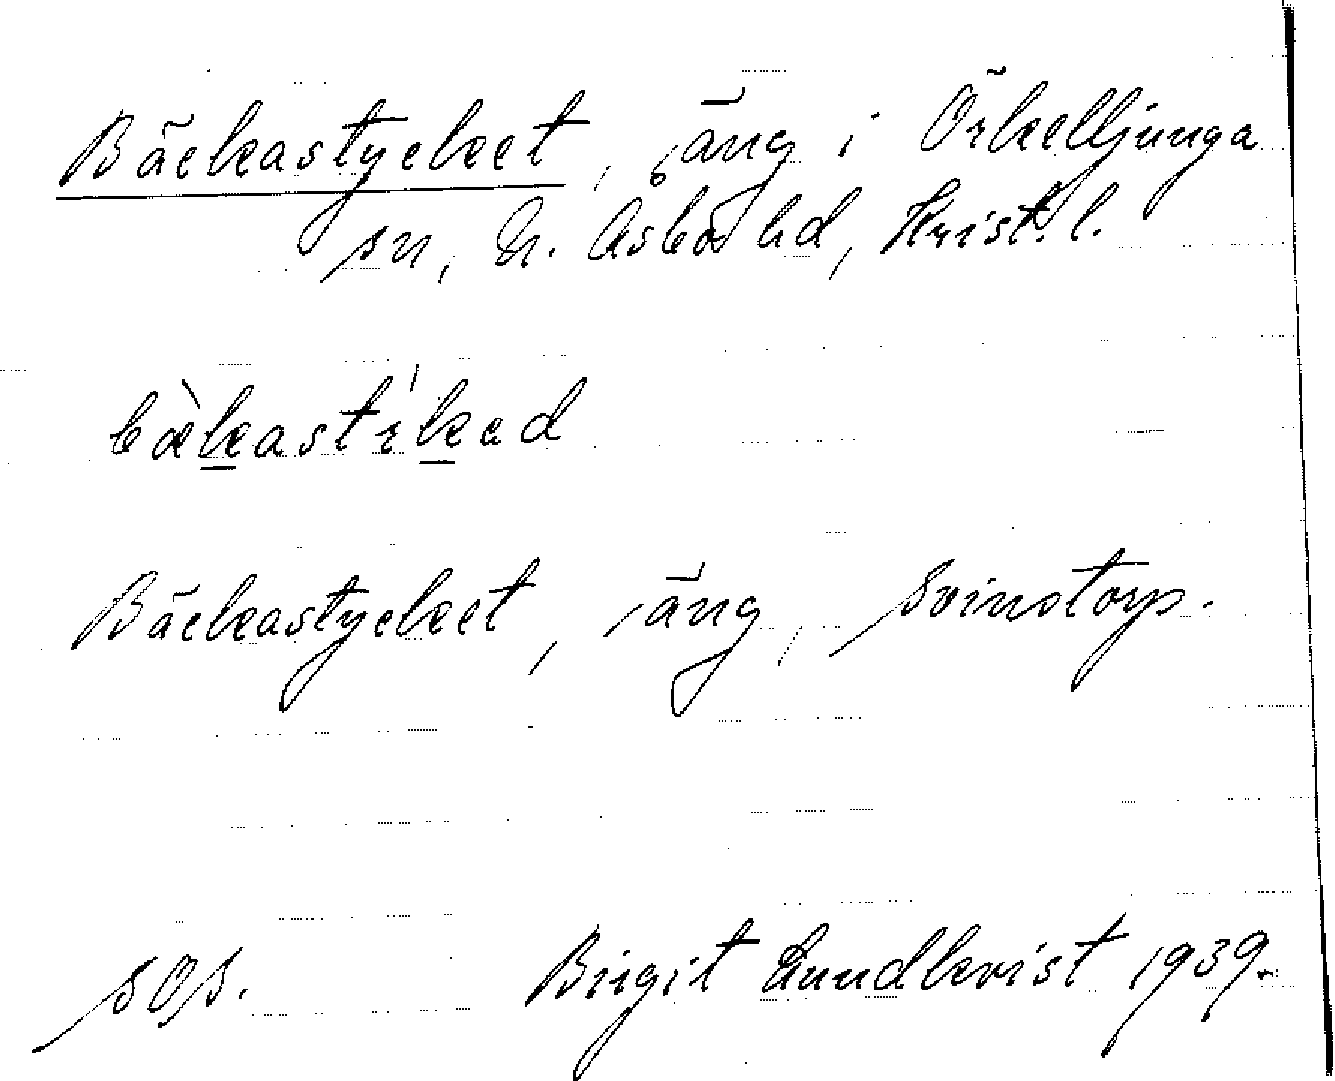 Bäckastycket, äng i Örkelljunga
sn, N. Åsbo hd, Krist. l.
bæ̀kastɪ̍kəd
Bäckastycket, äng, Svinstorp.
sOs. Birgit Lundkvist 1939.